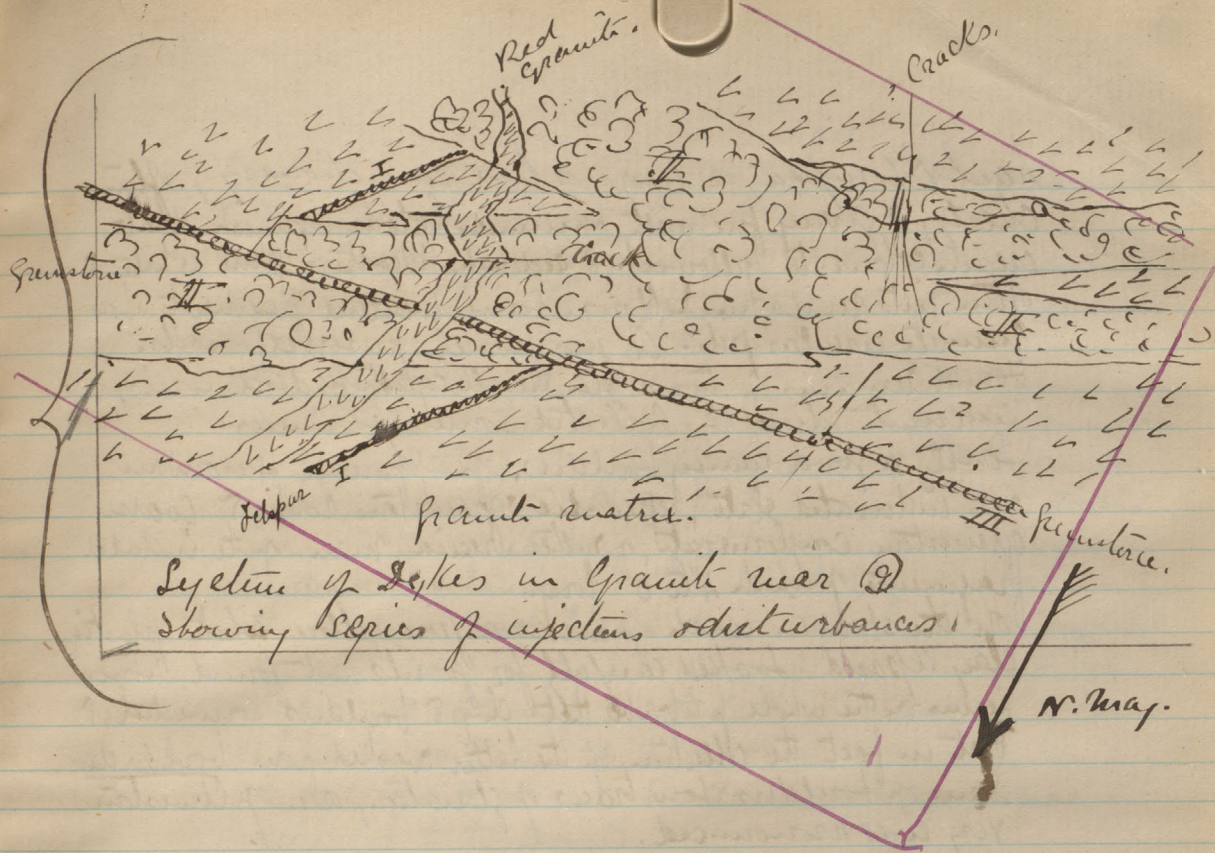 Red
Granite.
Cracks.
I
II
Crack
Greenstone
II.
II
I
Felspar
Granite matrix.
III Greenstone.
System of Dykes in Granite near 9
Showing Series of injections & disturbances.
N. Mag.